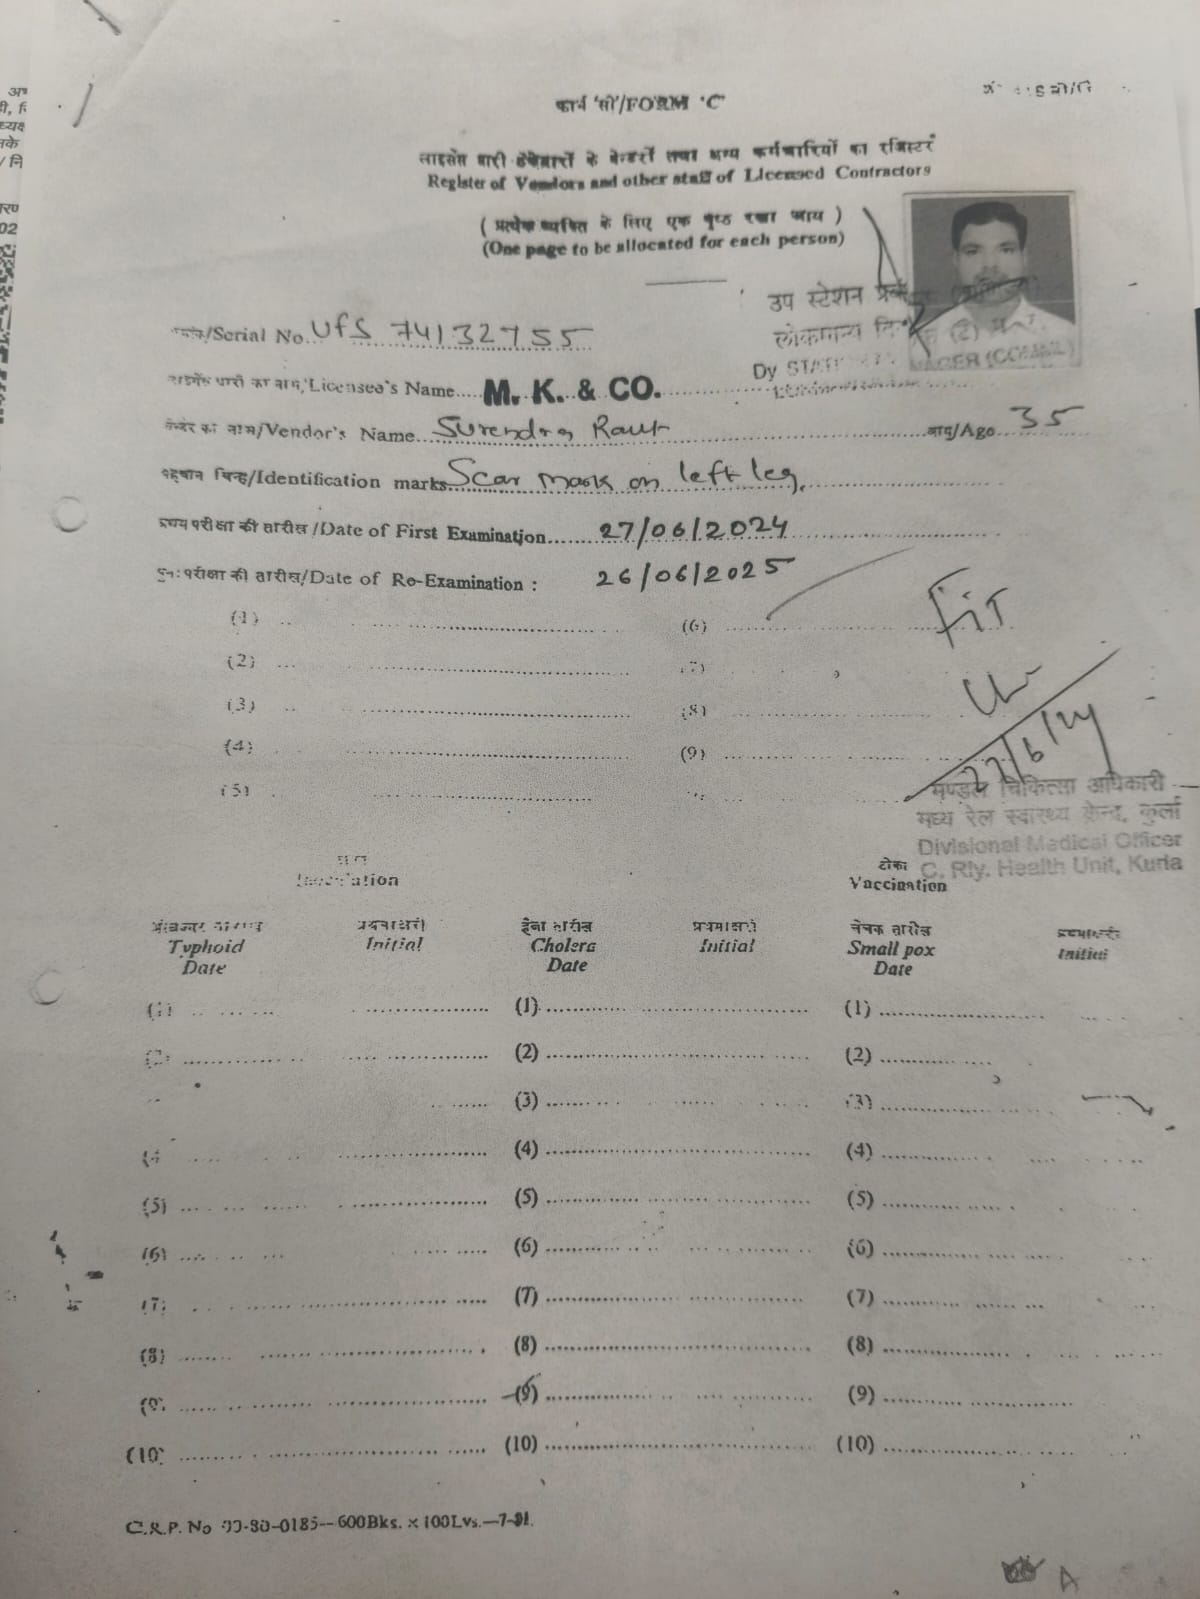 फार्म 'सी'/FORM 'C'
लाइसेंस धारी ठेकेदारों के वेन्डरों तथा अन्य कर्मचारियों का रजिस्टर
Register of Vendors and other staff of Licensed Contractors
( प्रत्येक व्यक्ति के लिए एक पृष्ठ रखा जाय )
(One page to be allocated for each person)
उप स्टेशन
लोकमान्य
Dy
/Serial No. UfS 74132755
लाइसेंस धारी का नाम/Licensee's Name.... M. K. & CO.
वेन्डर का नाम/Vendor's Name... Surendra Raut आयु/Age 35
पहचान चिन्ह/Identification marks Scar mark on left leg.
प्रथम परीक्षा की तारीख/Date of First Examination...... 27/06/2024
पुनः परीक्षा की तारीख/Date of Re-Examination : 26/06/2025
(1) (6)
Fit
(2) (7)
(3) (8)
(4) (9)
27/6/24
(5)
मण्डल चिकित्सा अधिकारी
मध्य रेल स्वास्थ्य केन्द्र, कुर्ला
Divisional Medical Officer
C. Rly. Health Unit, Kurla
टीका
Inoculation Vaccination
हैजा तारीख चेचक तारीख
Typhoid Initial Cholera Initial Small pox Initial
Date Date Date
(1) (1) (1)
(2) (2) (2)
(3) (3)
(4) (4) (4)
(5) (5) (5)
(6) (6) (6)
(7) (7) (7)
(8) (8) (8)
(9) (9) (9)
(10) (10) (10)
C.R.P. No 600Bks. × 100Lvs.
A